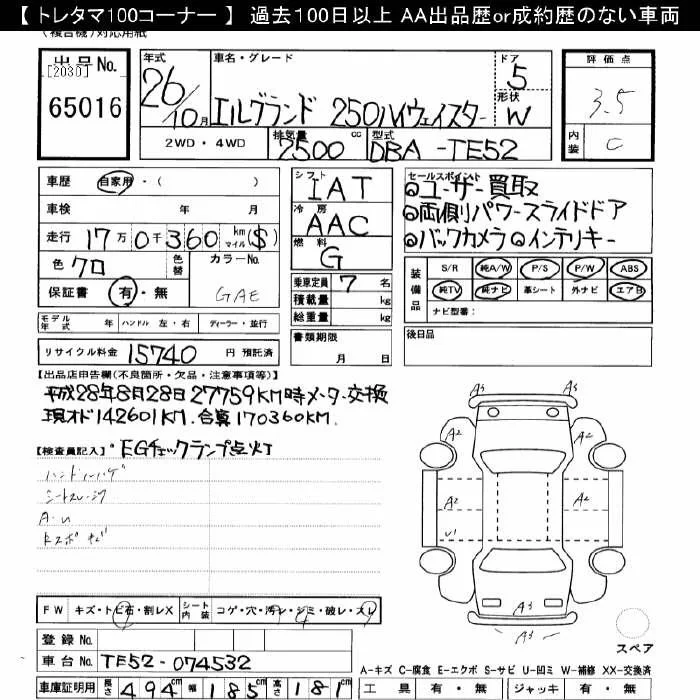 【 トレタマ100コーナー 】 過去100日以上 AA出品歴or成約歴のない車両
(複合機)対応用紙
出品No.
[2030]
65016
年式
26/10月
車名・グレード
エルグランド 250ハイウェイスター
ドア
5
形状
W
評価点
3.5
内装
C
2WD・4WD
排気量
2500cc
型式
DBA-TE52
車歴 自家用・( )
車検 年 月
走行 17万0千360 km マイル ($)
色 クロ
色替
カラーNo.
GAE
保証書 有・無
シフト
IAT
冷房
AAC
燃料
G
乗車定員 7 名
積載量 kg
総重量 kg
書類期限
月 日
セールスポイント
◎ユーザー買取
◎両側パワースライドドア
◎バックカメラ◎インテリキー
装備品
S/R 純A/W P/S P/W ABS
純TV 純ナビ 革シート 外ナビ エアB
ナビ型番:
後日品
モデル年式 年 ハンドル 左・右 ディーラー・並行
リサイクル料金 15740 円 預託済
【出品店申告欄(不良箇所・欠品・注意事項等)】
平成28年8月28日 27759KM時メーター交換
現オド142601KM. 合算170360KM.
【検査員記入】 EGチェックランプ点灯
ハンドルハゲ
シートスレ・シワ
A・U
FW キズ・トビ石・割レX シート内装 コゲ・穴・汚レ・シミ・破レ・スレ
登録No.
車台No. TE52-074532
車庫証明用 長さ 494 幅 185 高さ 181
A3 A3
A2 A2
A2 A2
U1
A3
A3
スペア
A-キズ C-腐食 E-エクボ S-サビ U-凹ミ W-補修 XX-交換済
工具 有・無 ジャッキ 有・無